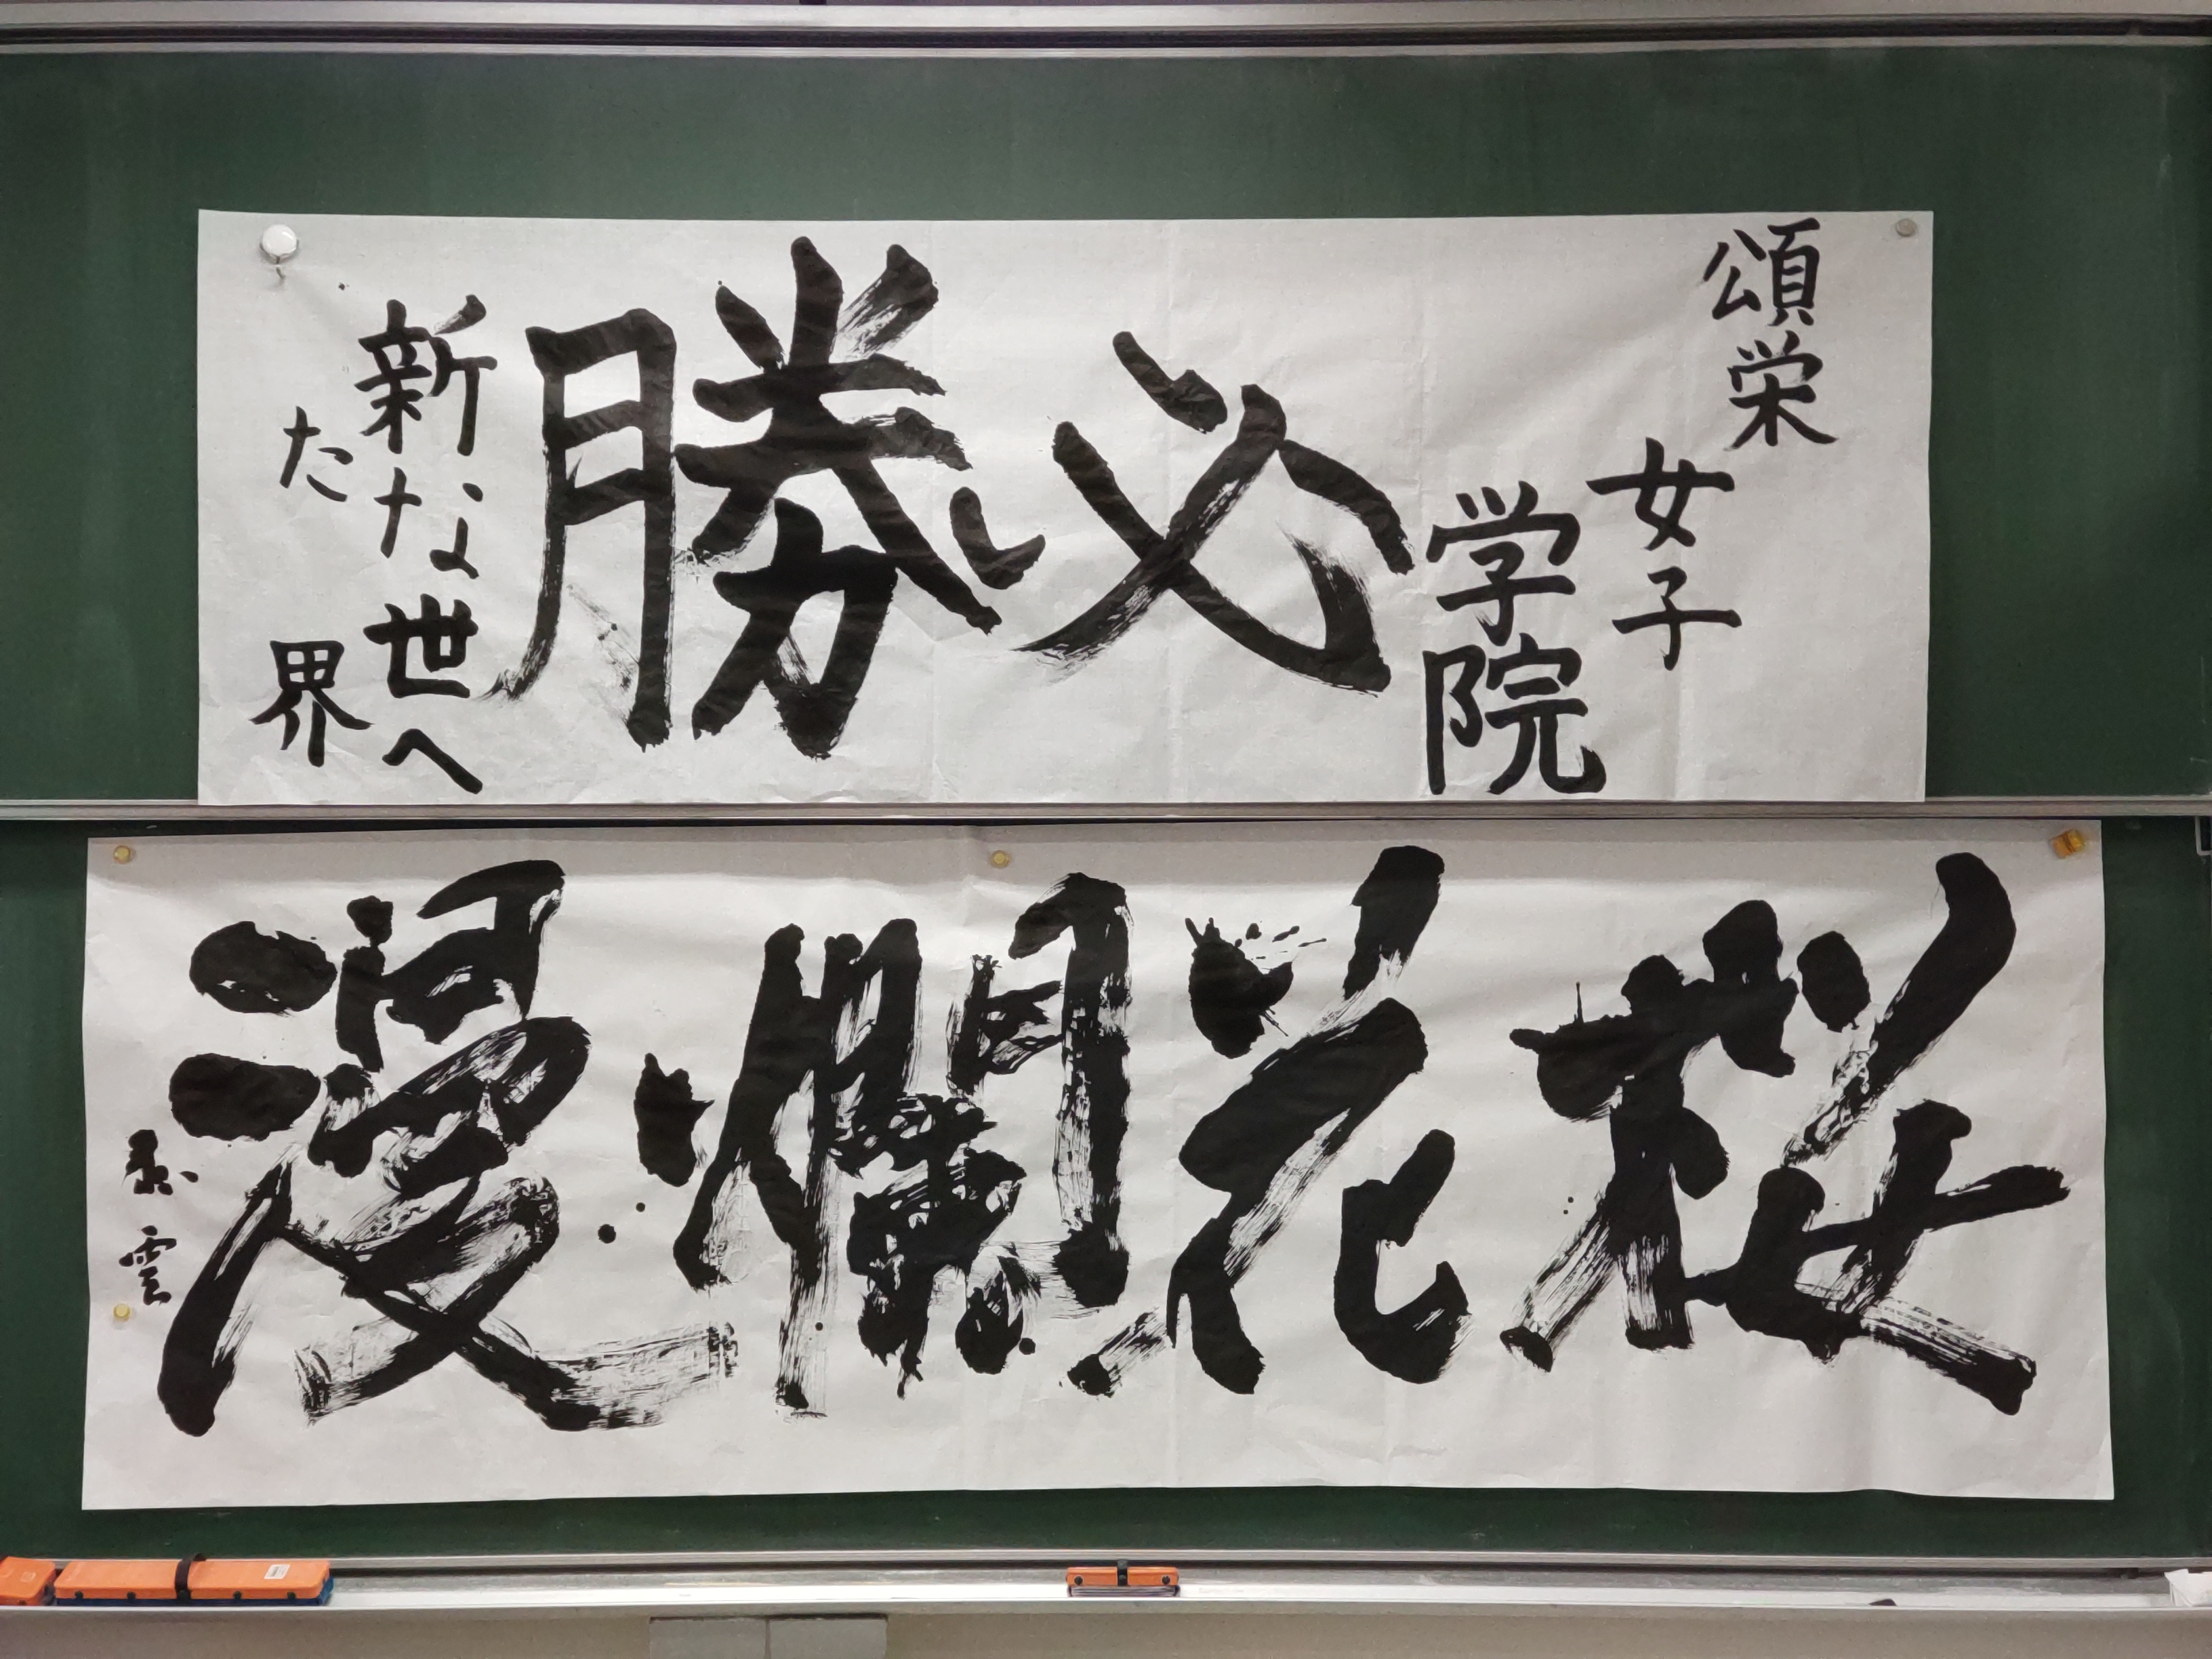 頌栄
女子
学院
必勝
新たな世界へ
桜花爛漫
雲